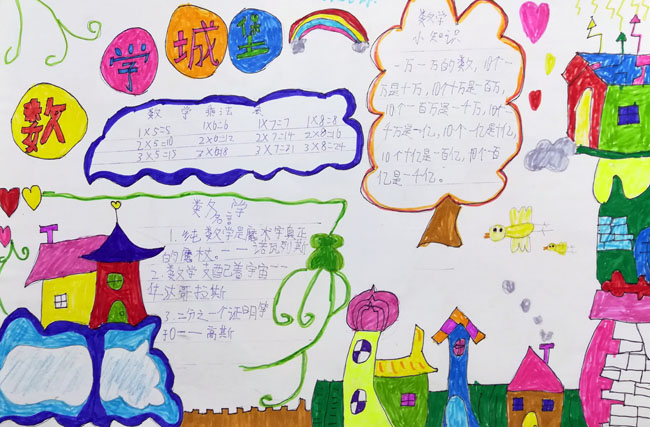 数学城堡
数 学 乘法 表
1×5=5 1×6=6 1×7=7 1×8=8
2×5=10 2×6=12 2×7=14 2×8=16
3×5=15 3×6=18 3×7=21 3×8=24
数学
小知识
一万一万的数,10个一
万是十万,10个十万是百万,
10个一百万是一千万,10个一
千万是一亿,10个一亿是十亿,
10个十亿是一百亿,10个百
亿是一千亿。
数学
名言
1. 纯数学是魔术字真正
的魔杖。——诺瓦列斯
2. 数学支配着宇宙——
毕达哥拉斯
3. 二分之一个证明等
于0——高斯